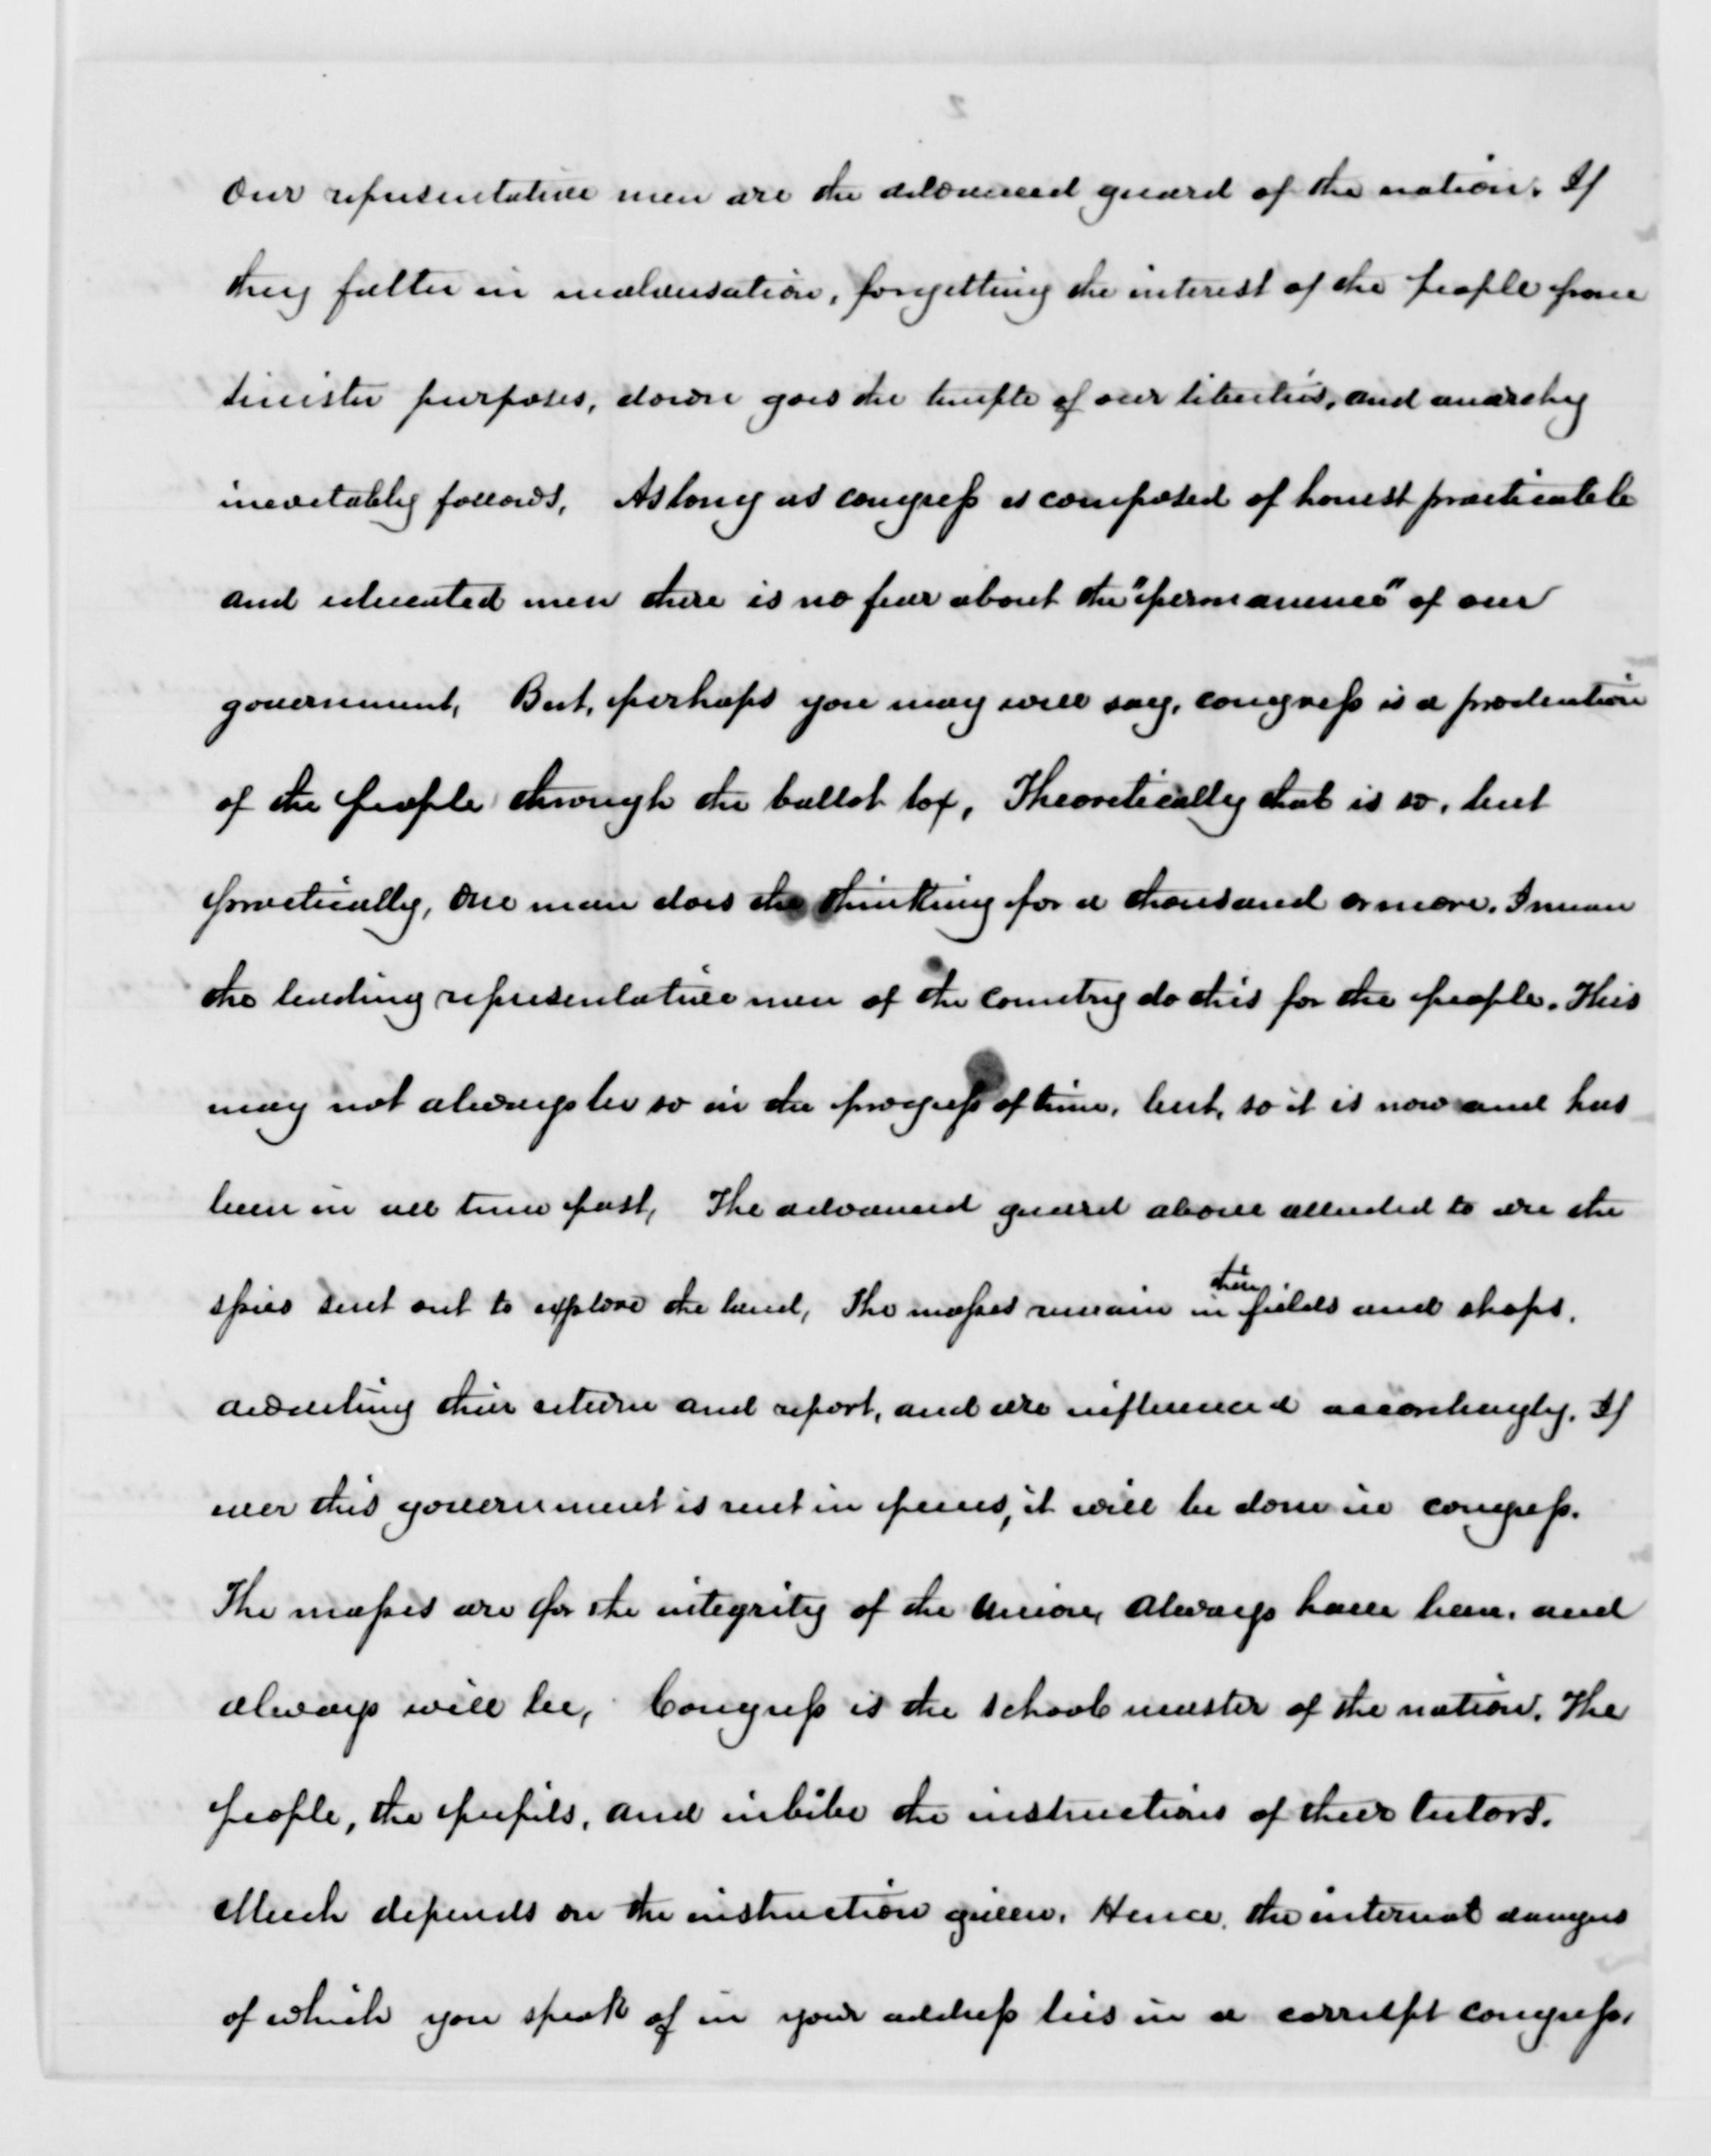 2
Our representative men are the advanced guard of the nation. If
they falter in malversation, forgetting the interest of the people from
sinister purposes, down goes the temple of our liberties, and anarchy
inevitably follows, As long as congress is composed of honest practicable
and educated men there is no fear about the "permanence" of our
government, But, perhaps you may well say, congress is a production
of the people through the ballot box, Theoretically that is so, but
practically, one man does the thinking for a thousand or more. I mean
the leading representative men of the country do this for the people. This
may not always be so in the progress of time, but, so it is now and has
been in all time past, The advanced guard above alluded to are the
spies sent out to explore the land, The masses remain in their fields and shops,
awaiting their return and report, and are influenced accordingly. If
ever this government is rent in pieces, it will be done in congress.
The masses are for the integrity of the Union, Always have been, and
always will be, Congress is the school master of the nation. The
people, the pupils, and inbibe the instructions of their tutors.
Much depends on the instruction given. Hence, the internal dangers
of which you speak of in your address lies in a corrupt congress,